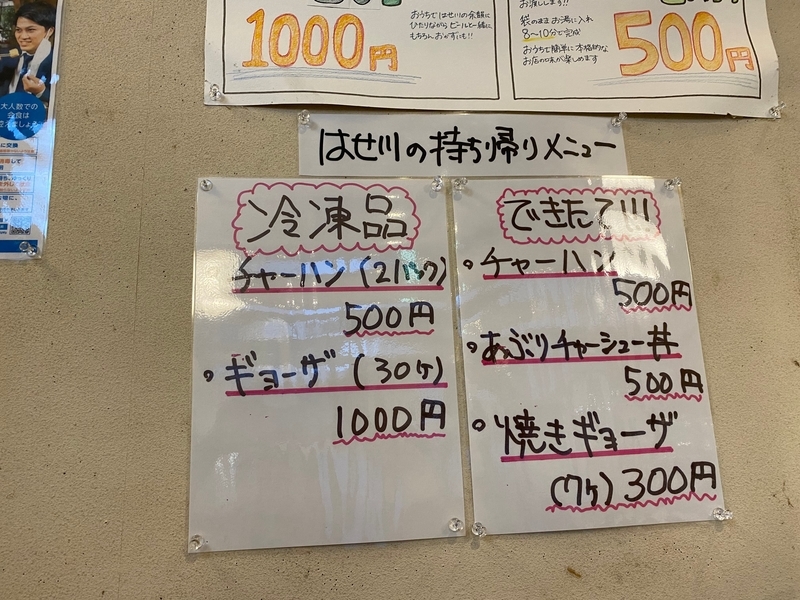 1000円
おうちではせ川の余韻に
ひたりながらビールと一緒に
もちろんおかずにも!!
お渡しします!!
袋のままお湯に入れ
8〜10分で完成
おうちで簡単に本格的な
お店の味が楽しめます
500円
大人数での
会食は
はせ川の持ち帰りメニュー
冷凍品
チャーハン(2パック)
500円
ギョーザ(30ヶ)
1000円
できたて!!!
チャーハン
500円
あぶりチャーシュー丼
500円
焼きギョーザ
(7ヶ)300円